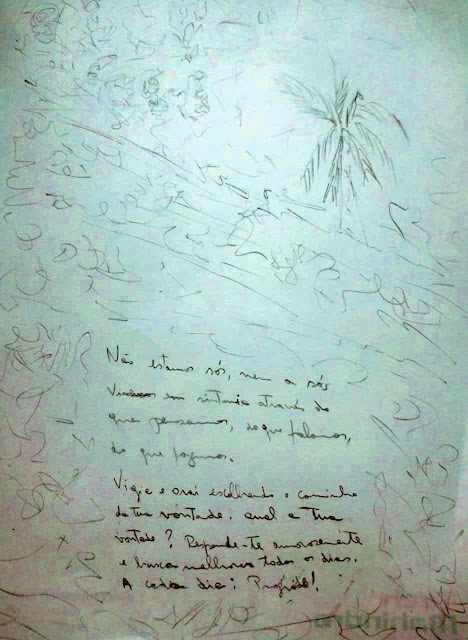 Não estamos sós, nem a sós
Vivemos em sintonia através do
que pensamos, do que falamos,
do que fazemos.
Vigie e orai escolhendo o caminho
da tua vontade. Qual a Tua
vontade? Responde-te amorosamente
e busca melhorar todos os dias.
A cada dia: Progride!